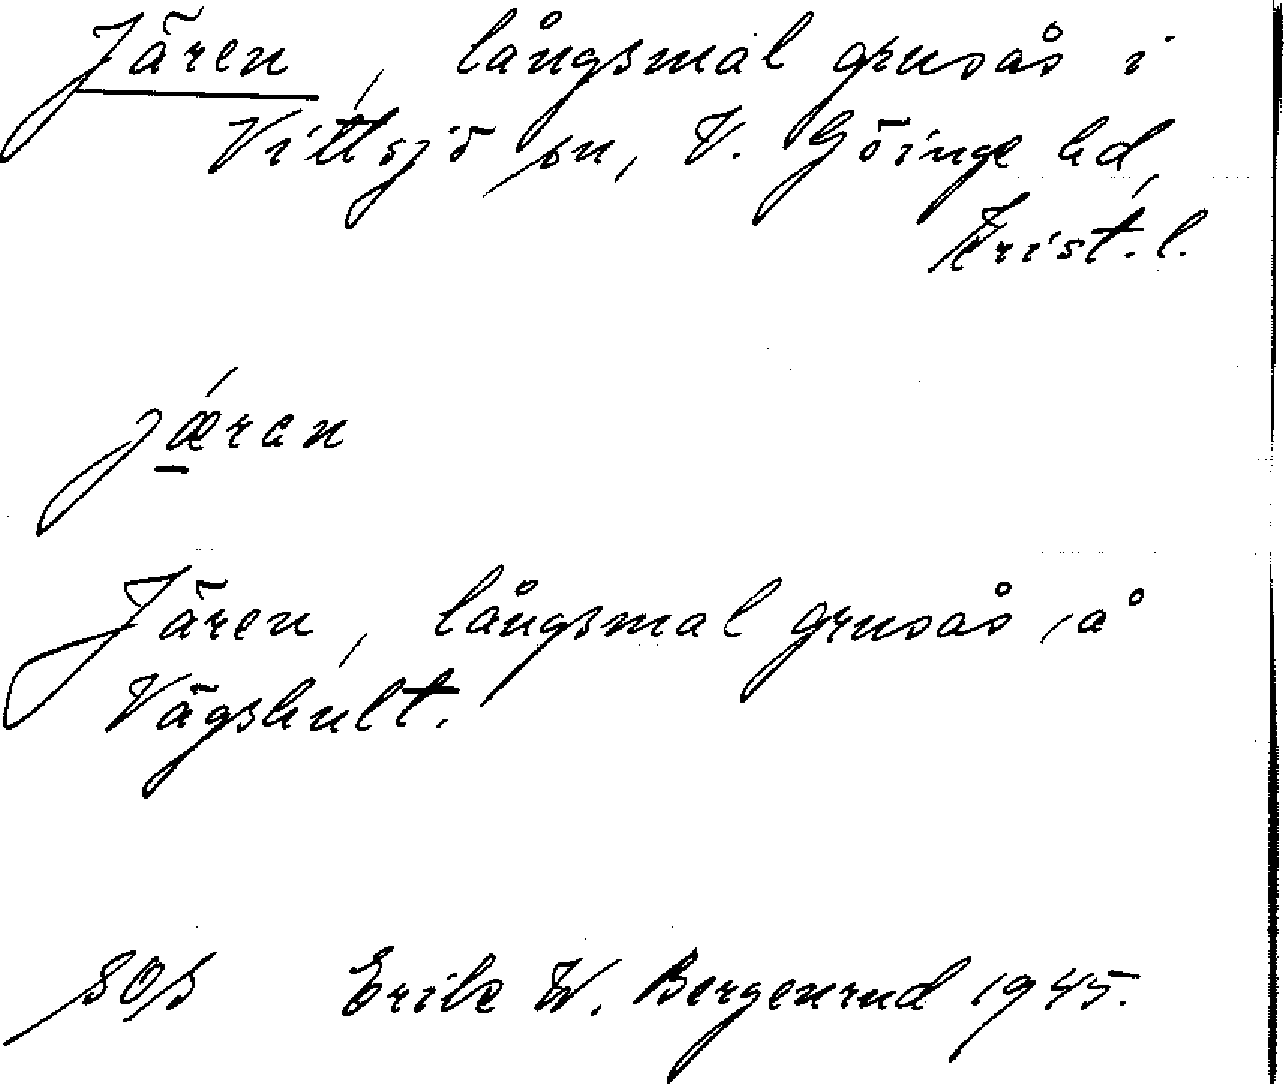 Jären, långsmal grusås i
Vittsjö sn, V. Göinge hd,
Krist. l.
jǽ̱ran
Jären, långsmal grusås, å
Vägshult.
SOS Erik W. Bergenrud 1945.